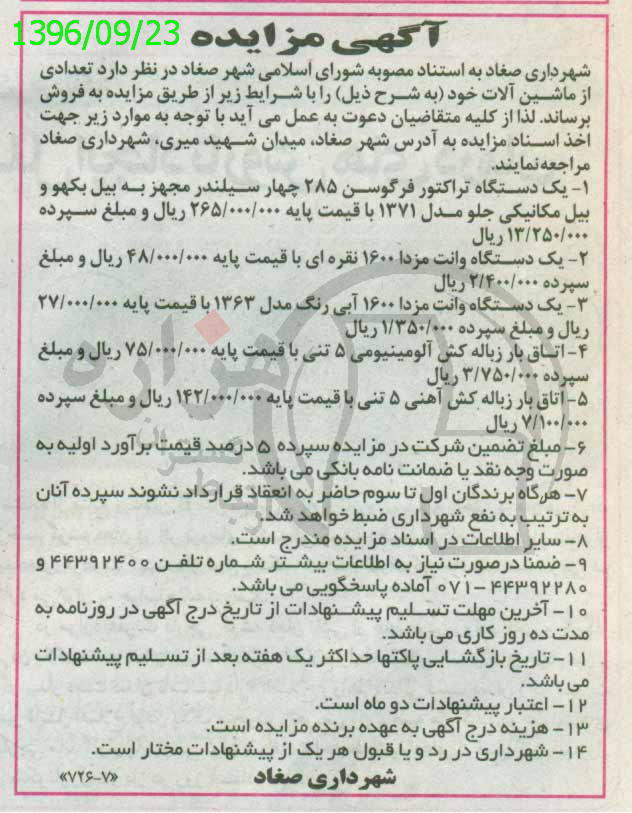 1396/09/23
آگهی مزایده
شهرداری صغاد به استناد مصوبه شورای اسلامی شهر صغاد در نظر دارد تعدادی
از ماشین آلات خود (به شرح ذیل) را با شرایط زیر از طریق مزایده به فروش
برساند. لذا از کلیه متقاضیان دعوت به عمل می آید با توجه به موارد زیر جهت
اخذ اسناد مزایده به آدرس شهر صغاد، میدان شهید میری، شهرداری صغاد
مراجعه نمایند.
۱- یک دستگاه تراکتور فرگوسن ۲۸۵ چهار سیلندر مجهز به بیل بکهو و
بیل مکانیکی جلو مدل ۱۳۷۱ با قیمت پایه ۲۶۵/۰۰۰/۰۰۰ ریال و مبلغ سپرده
۱۳/۲۵۰/۰۰۰ ریال
۲- یک دستگاه وانت مزدا ۱۶۰۰ نقره ای با قیمت پایه ۴۸/۰۰۰/۰۰۰ ریال و مبلغ
سپرده ۲/۴۰۰/۰۰۰ ریال
۳- یک دستگاه وانت مزدا ۱۶۰۰ آبی رنگ مدل ۱۳۶۳ با قیمت پایه ۲۷/۰۰۰/۰۰۰
ریال و مبلغ سپرده ۱/۳۵۰/۰۰۰ ریال
۴- اتاق بار زباله کش آلومینیومی ۵ تنی با قیمت پایه ۷۵/۰۰۰/۰۰۰ ریال و مبلغ
سپرده ۳/۷۵۰/۰۰۰ ریال
۵- اتاق بار زباله کش آهنی ۵ تنی با قیمت پایه ۱۴۲/۰۰۰/۰۰۰ ریال و مبلغ سپرده
۷/۱۰۰/۰۰۰ ریال
۶- مبلغ تضمین شرکت در مزایده سپرده ۵ درصد قیمت برآورد اولیه به
صورت وجه نقد یا ضمانت نامه بانکی می باشد.
۷- هرگاه برندگان اول تا سوم حاضر به انعقاد قرارداد نشوند سپرده آنان
به ترتیب به نفع شهرداری ضبط خواهد شد.
۸- سایر اطلاعات در اسناد مزایده مندرج است.
۹- ضمنا درصورت نیاز به اطلاعات بیشتر شماره تلفن ۴۴۳۹۲۴۰۰ و
۴۴۳۹۲۲۸۰-۰۷۱ آماده پاسخگویی می باشد.
۱۰- آخرین مهلت تسلیم پیشنهادات از تاریخ درج آگهی در روزنامه به
مدت ده روز کاری می باشد.
۱۱- تاریخ بازگشایی پاکتها حداکثر یک هفته بعد از تسلیم پیشنهادات
می باشد.
۱۲- اعتبار پیشنهادات دو ماه است.
۱۳- هزینه درج آگهی به عهده برنده مزایده است.
۱۴- شهرداری در رد و یا قبول هر یک از پیشنهادات مختار است.
شهرداری صغاد
«۷۲۶-۷»
هزاره